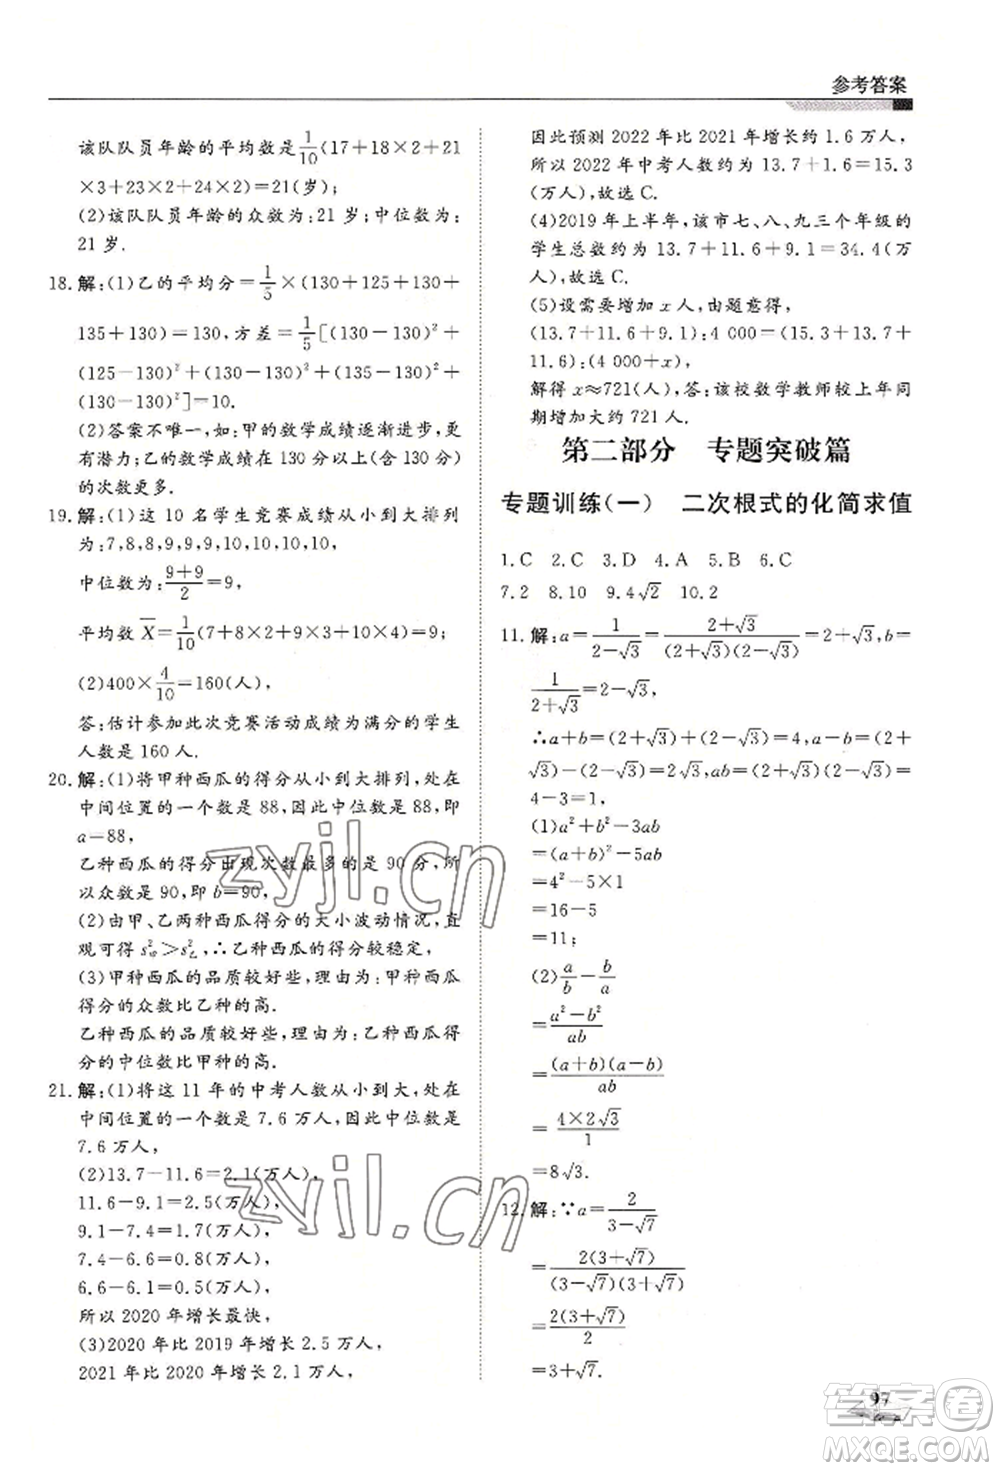 参考答案
该队队员年龄的平均数是1/10(17+18×2+21
×3+23×2+24×2)=21(岁);
(2)该队队员年龄的众数为:21岁;中位数为:
21岁.
18.解:(1)乙的平均分=1/5×(130+125+130+
135+130)=130,方差=1/5[(130-130)²+
(125-130)²+(130-130)²+(135-130)²+
(130-130)²]=10.
(2)答案不唯一,如:甲的数学成绩逐步进步,
有潜力;乙的数学成绩在130分以上(含130分)
的次数更多.
19.解:(1)这10名学生竞赛成绩从小到大排列
为:7,8,8,9,9,9,9,10,10,10,
中位数为:(9+9)/2=9,
平均数X̄=1/10(7+8×2+9×4+10×3)=9;
(2)400×4/10=160(人),
答:估计参加此次竞赛活动成绩为满分的学生
人数是160人.
20.解:(1)将甲种西瓜的得分从小到大排列,在
中间位置的一个数是88,因此中位数是88,即
a=88,
乙种西瓜的得分出现次数最多的是90分,所
以众数是90,即b=90,
(2)由甲、乙两种西瓜得分的大小波动情况,直
观可得s²甲>s²乙,∴乙种西瓜的得分较稳定,
(3)甲种西瓜的品质较好些,理由为:甲种西瓜
得分的众数比乙种的高.
乙种西瓜的品质较好些,理由为:乙种西瓜得
分的中位数比甲种的高.
21.解:(1)将这11年的中考人数从小到大,在
中间位置的一个数是7.6万人,因此中位数是
7.6万人,
(2)13.7-11.6=2.1(万人),
11.6-9.1=2.5(万人),
9.1-7.4=1.7(万人),
7.4-6.6=0.8(万人),
6.6-6.1=0.5(万人),
所以2020年增长最快,
(3)2020年比2019年增长2.5万人,
2021年比2020年增长2.1万人,
因此预测2022年比2021年增长约1.6万人,
所以2022年中考人数约为13.7+1.6=15.3
(万人),故选C.
(4)2019年上半年,该市七、八、九三个年级的
学生总数约为13.7+11.6+9.1=34.4(万
人),故选C.
(5)设需要增加x人,由题意得,
(13.7+11.6+9.1):4 000=(15.3+13.7+
11.6):(4 000+x),
解得x≈721(人),答:该校数学教师较上年同
期增加大约721人.
第二部分 专题突破篇
专题训练(一) 二次根式的化简求值
1.C 2.C 3.D 4.A 5.B 6.C
7.2 8.10 9.4√2 10.2
11.解:a=1/(2-√3)=(2+√3)/((2+√3)(2-√3))=2+√3,b=
1/(2+√3)=2-√3,
∴a+b=(2+√3)+(2-√3)=4,a-b=(2+
√3)-(2-√3)=2√3,ab=(2+√3)(2-√3)=
4-3=1,
(1)a²+b²-3ab
=(a+b)²-5ab
=4²-5×1
=16-5
=11;
(2)a/b-b/a
=(a²-b²)/ab
=(a+b)(a-b)/ab
=(4×2√3)/1
=8√3.
12.解:∵a=2/(3-√7)
=2(3+√7)/((3-√7)(3+√7))
=2(3+√7)/2
=3+√7,
97
zyjl.cn
zyjl.cn
答案圈
MXQE.COM